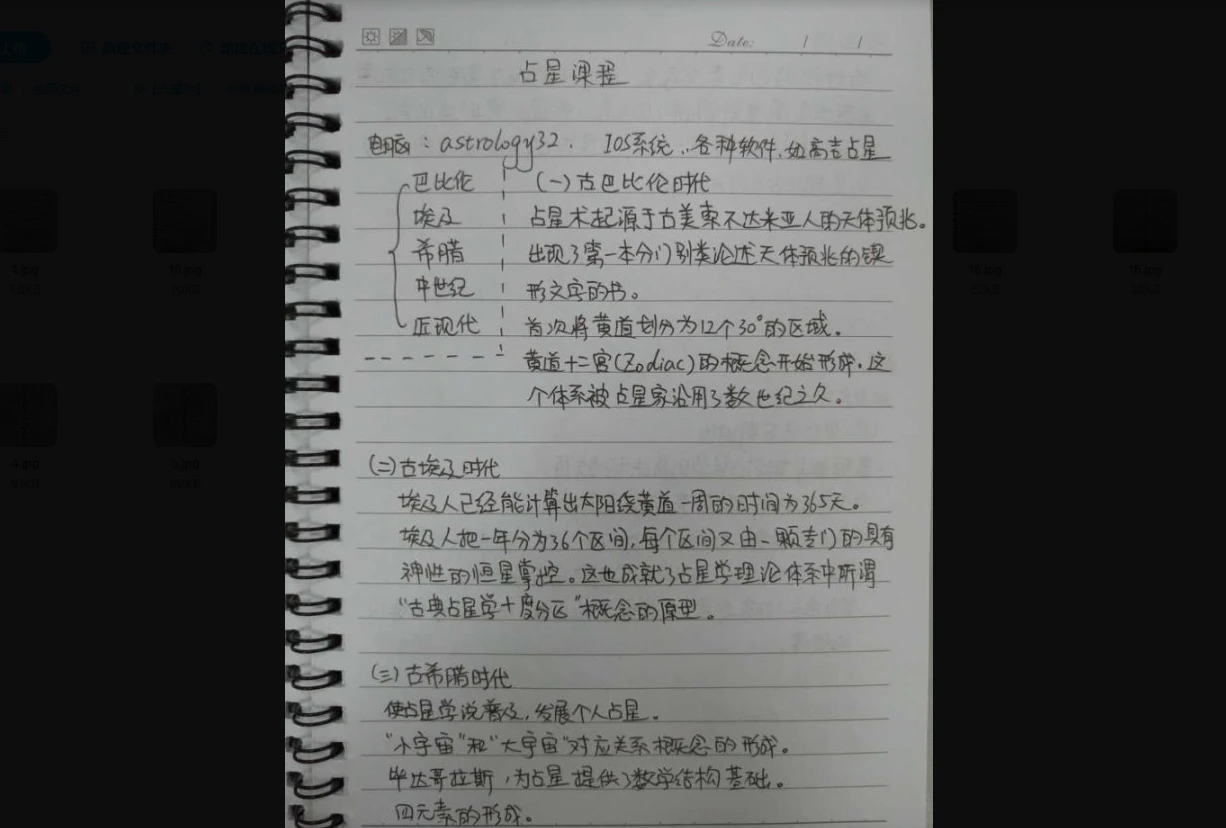 Date: / /
占星课程
电脑：astrology32. IOS系统..各种软件.如高吉占星
巴比伦
埃及
希腊
中世纪
近现代
（一）古巴比伦时代
占星术起源于古美索不达米亚人的天体预兆。
出现了第一本分门别类论述天体预兆的楔
形文字的书。
首次将黄道划分为12个30°的区域.
黄道十二宫(Zodiac)的概念开始形成.这
个体系被占星家沿用了数世纪之久.
（二）古埃及时代
埃及人已经能计算出太阳绕黄道一周的时间为365天。
埃及人把一年分为36个区间,每个区间又由一颗专门的具有
神性的恒星掌控。这也成就了占星学理论体系中所谓
“古典占星学十度分区”概念的原型。
（三）古希腊时代
使占星学说普及,发展个人占星.
“小宇宙”和“大宇宙”对应关系概念的形成。
毕达哥拉斯,为占星提供了数学结构基础.
四元素的形成.